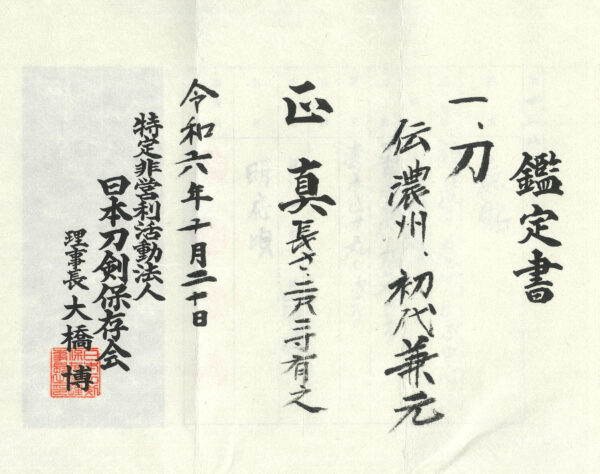 鑑定書
一、刀
伝濃州、初代兼元
正真 長さ・二尺三寸有之
令和六年十月二十日
特定非営利活動法人
日本刀剣保存会
理事長 大橋 博